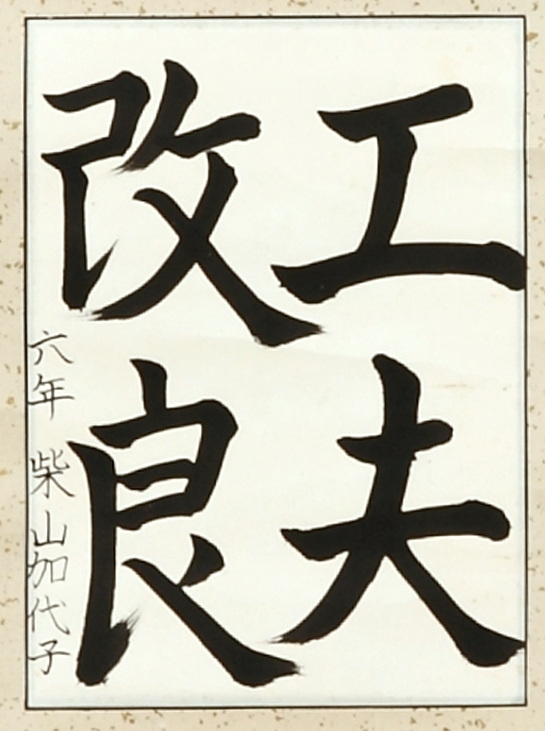 工夫
改良
六年 柴山加代子